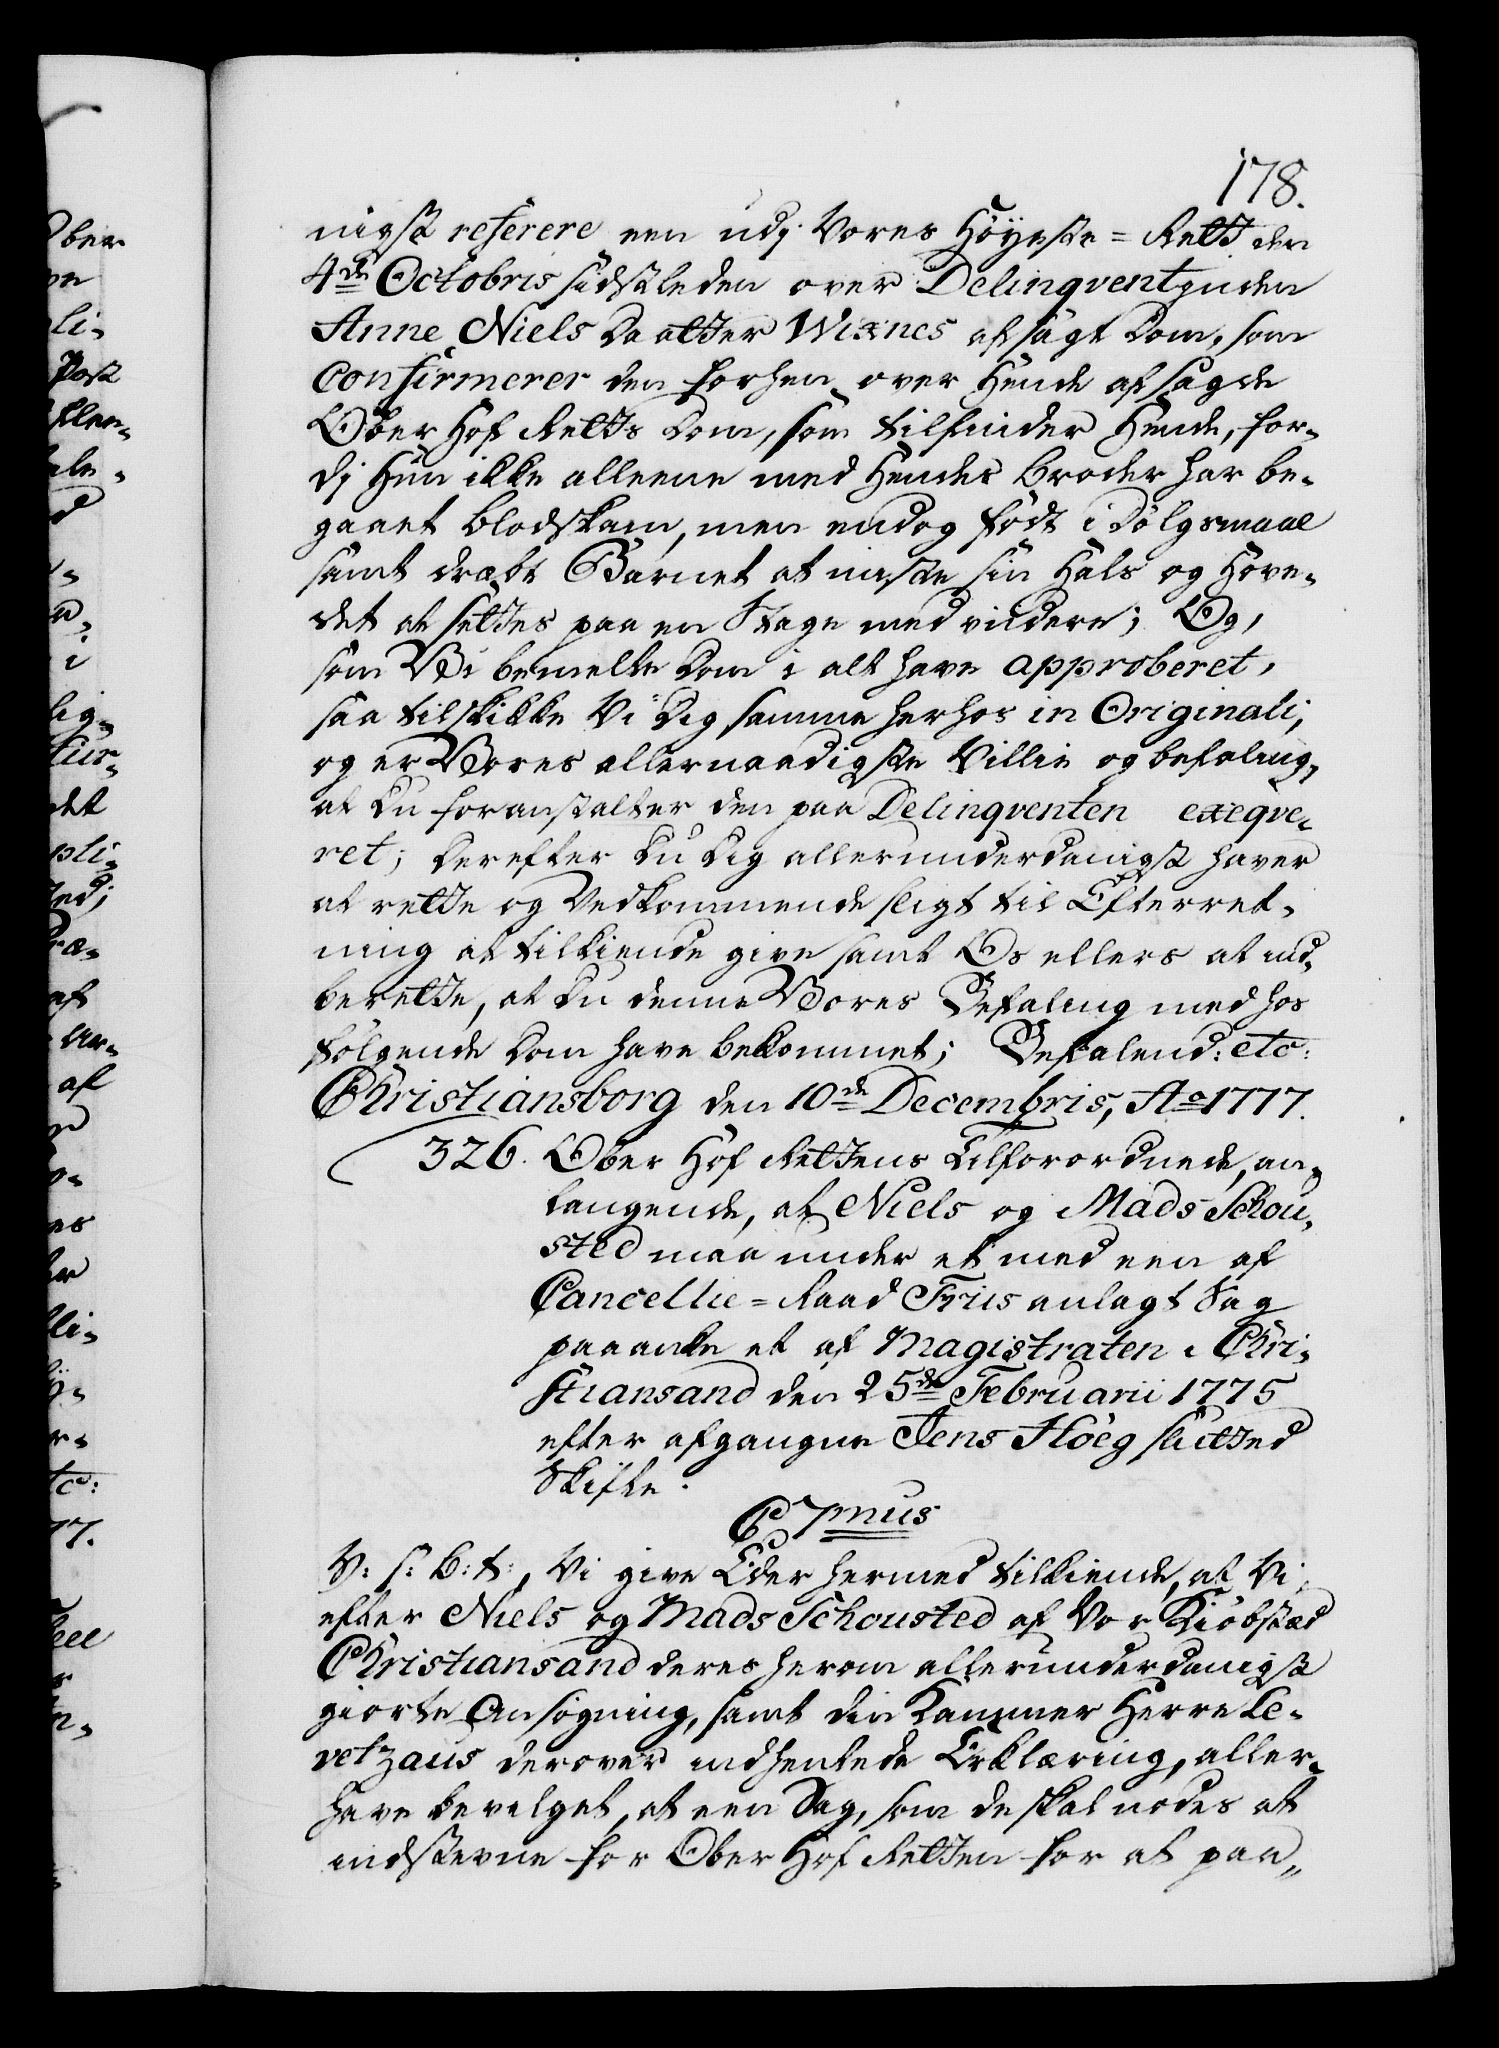 178.
nigst referere een udj Vores Höyeste = Rett den
4de Octobris sidstleden over Delinqventinden
Anne Niels Daatter Wixnes afsagt Dom, som
Confirmerer den forhen over Hende afsagde
Ober Hof Retts Dom, som tilfinder Hende, for-
dj Hun ikke alleene med Hendes Broder har be-
gaaet Blodskam, men endog födt i Dölgsmaal
samt dræbt Barnet at miste sin Hals og Hove-
det at settes paa en Stage med videre; Og,
som Vi bemelte Dom i alt have approberet,
saa tilskikke Vi Dig samme herhos in Originali;
og er Vores allernaadigste Villie og befaling,
at Du foranstalter den paa Delinqventen exeqve-
ret; Derefter Du Dig allerunderdanigst haver
at rette og Vedkommende sligt til Efterret-
ning at tilkiende give samt Os ellers at ind-
berette, at Du denne Vores Befaling med hos
fölgende Dom have bekommet; Befalend: etc:
Christiansborg den 10de Decembris, Ao 1777.
326. Ober Hof Rettens Tilforordnede, an-
langende, at Niels og Mads Schou-
sted maa under et med een af
Cancellie = Raad Friis anlagt Sag
paaanke et af Magistraten i Chri-
stiansand den 25de Februarii 1775
efter afgangne Jens Höeg slutted
Skifte.
C 7mus
V: s: B: t:, Vi give Eder hermed tilkiende, at Vi
efter Niels og Mads Schousted af Vor Kiöbstæd
Christiansand deres herom allerunderdanigst
giorte Ansögning, samt din Kammer Herre Le-
vetzaus derover indhentede Erklæring, aller-
have bevilget, at een Sag, som de skal nödes at
indstevne for Ober Hof Retten for at paa-